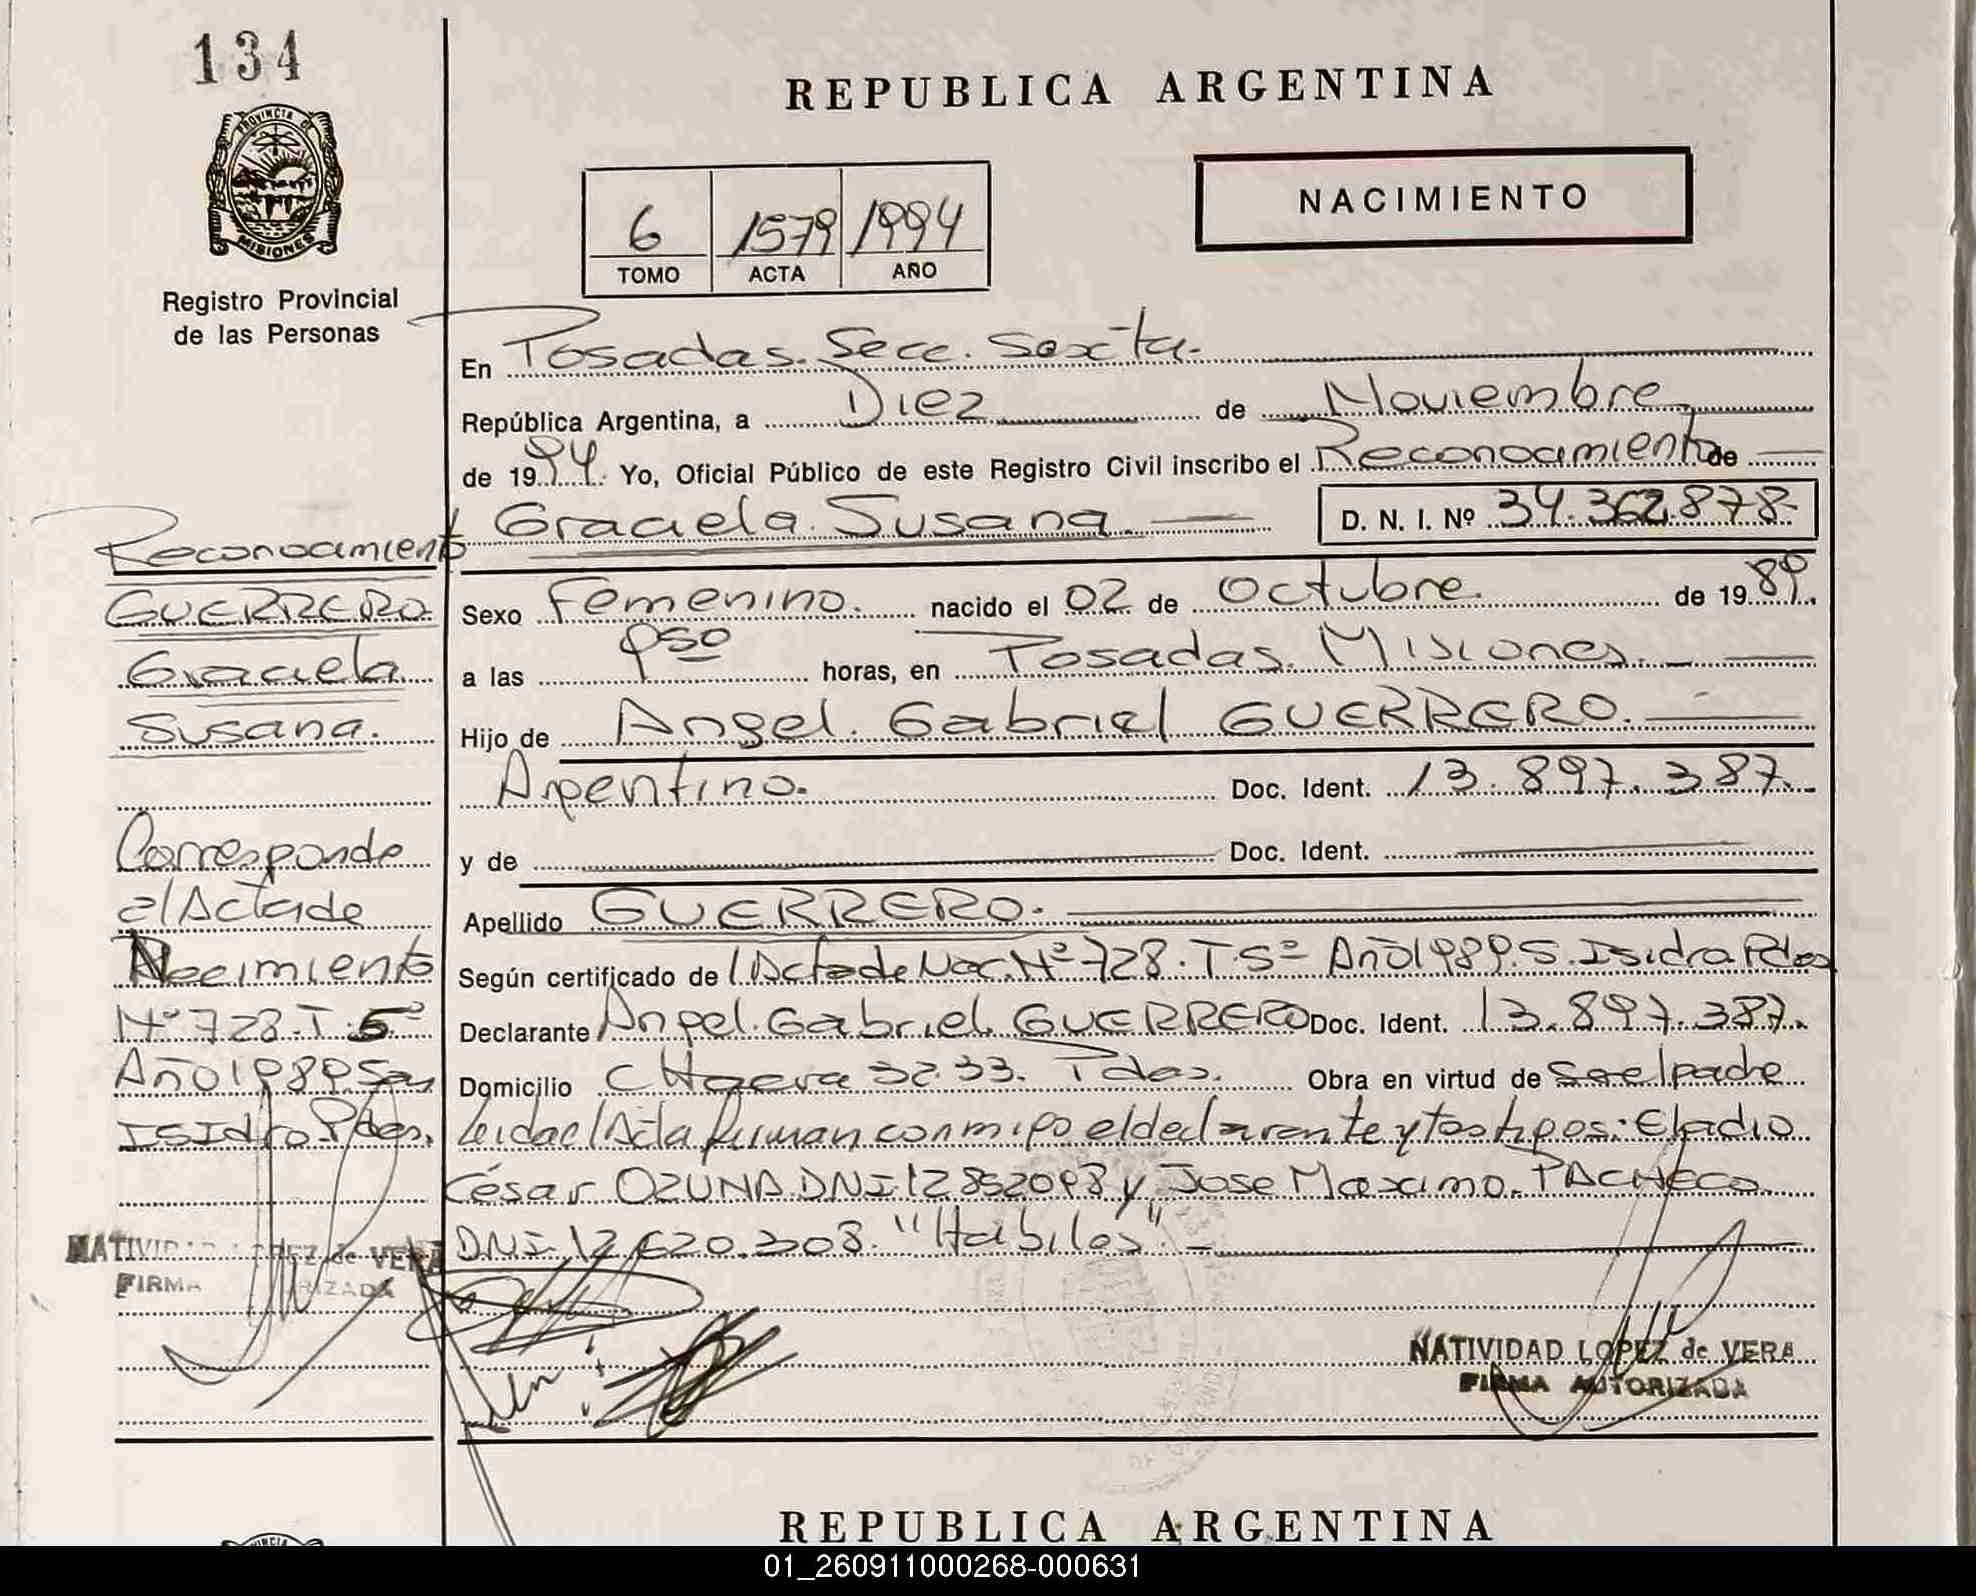 134
PROVINCIA DE
MISIONES
Registro Provincial
de las Personas
REPUBLICA ARGENTINA
NACIMIENTO
6 1579 1994
TOMO ACTA AÑO
En Posadas. Secc. Sexta.
República Argentina, a Diez de Noviembre
de 1994. Yo, Oficial Público de este Registro Civil inscribo el Reconocimiento de
Graciela Susana. D. N. I. Nº 34.362.878
Sexo Femenino. nacido el 02 de Octubre. de 1989.
a las 9⁵⁰ horas, en Posadas. Misiones.
Hijo de Angel. Gabriel GUERRERO.
Argentino. Doc. Ident. 13.897.387.
y de Doc. Ident.
Apellido GUERRERO.
Según certificado de l'Acta de Nac. Nº 728. T 5º Año 1989. S. Isidro Pdas
Declarante Angel. Gabriel GUERRERO Doc. Ident. 13.897.387.
Domicilio 3233. Pdas. Obra en virtud de Ser el padre
Leida el Acta firman conmigo el declarante y tos : Eladio
César OZUNA DNI 12852098 y Jose Maximo. PACHECO
DNI. 12.620.308. "Habiles".
Reconocimiento
GUERRERO.
Graciela
Susana.
Corresponde
al Acta de
Nacimiento
Nº 728. T. 5º
Año 1989 San
Isidro Pdas.
NATIVIDAD LOPEZ de VERA
FIRMA AUTORIZADA
NATIVIDAD LOPEZ de VERA
FIRMA AUTORIZADA
REPUBLICA ARGENTINA
01_260911000268-000631